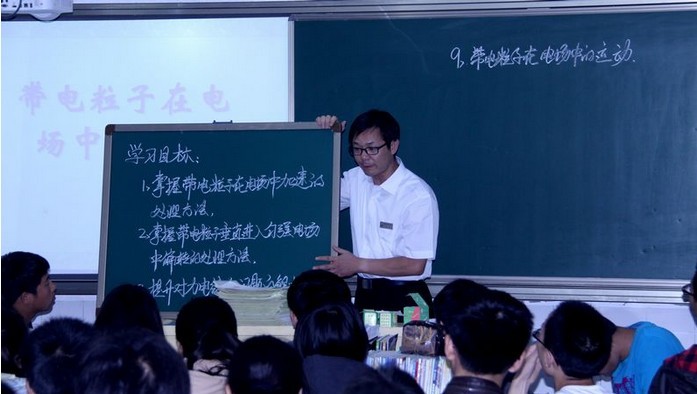 带电粒子在电
场中
9、带电粒子在电场中的运动.
学习目标：
1、掌握带电粒子在电场中加速的
处理方法,
2、掌握带电粒子垂直进入匀强电场
中偏转的处理方法,
提升对力电